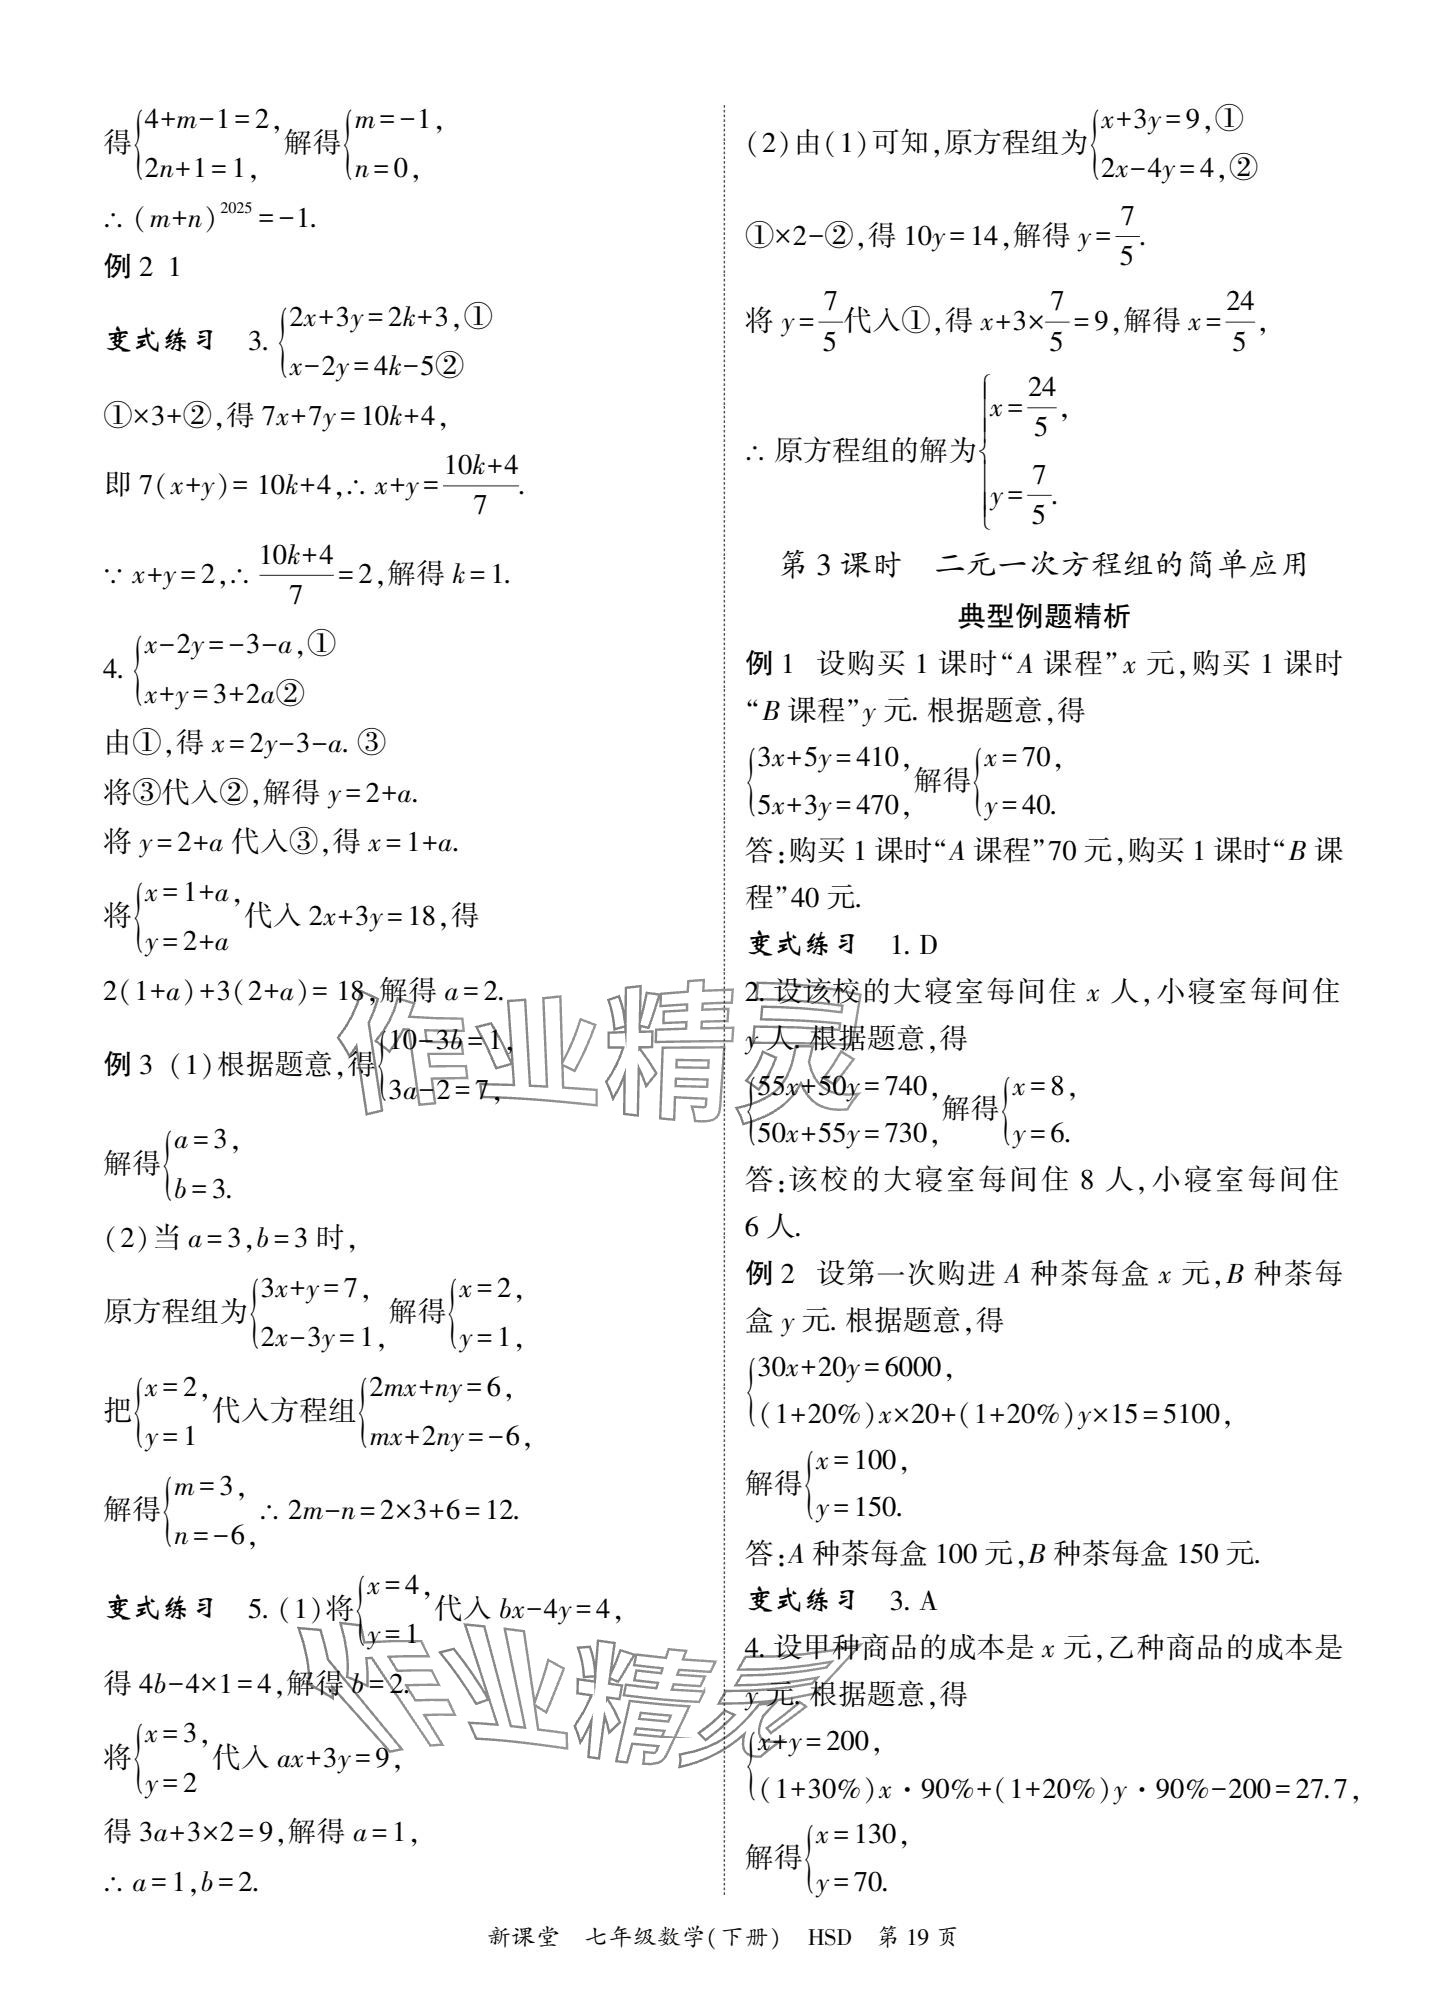 得{4+m-1=2,
2n+1=1, 解得{m=-1,
n=0,
∴ (m+n)^2025=-1.
例 2  1
变式练习  3. {2x+3y=2k+3,①
x-2y=4k-5②
①×3+②,得 7x+7y=10k+4,
即 7(x+y)=10k+4,∴ x+y=(10k+4)/7.
∵ x+y=2,∴ (10k+4)/7=2,解得 k=1.
4. {x-2y=-3-a,①
x+y=3+2a②
由①,得 x=2y-3-a. ③
将③代入②,解得 y=2+a.
将 y=2+a 代入③,得 x=1+a.
将{x=1+a,
y=2+a 代入 2x+3y=18,得
2(1+a)+3(2+a)=18,解得 a=2.
例 3  (1)根据题意,得{10-3b=1,
3a-2=7,
解得{a=3,
b=3.
(2)当 a=3,b=3 时,
原方程组为{3x+y=7,
2x-3y=1, 解得{x=2,
y=1,
把{x=2,
y=1 代入方程组{2mx+ny=6,
mx+2ny=-6,
解得{m=3,
n=-6, ∴ 2m-n=2×3+6=12.
变式练习  5. (1)将{x=4,
y=1 代入 bx-4y=4,
得 4b-4×1=4,解得 b=2.
将{x=3,
y=2 代入 ax+3y=9,
得 3a+3×2=9,解得 a=1,
∴ a=1,b=2.
(2)由(1)可知,原方程组为{x+3y=9,①
2x-4y=4,②
①×2-②,得 10y=14,解得 y=7/5.
将 y=7/5代入①,得 x+3×7/5=9,解得 x=24/5,
∴ 原方程组的解为{x=24/5,
y=7/5.
第 3 课时  二元一次方程组的简单应用
典型例题精析
例 1  设购买 1 课时“A 课程”x 元,购买 1 课时
“B 课程”y 元. 根据题意,得
{3x+5y=410,
5x+3y=470, 解得{x=70,
y=40.
答:购买 1 课时“A 课程”70 元,购买 1 课时“B 课
程”40 元.
变式练习  1. D
2. 设该校的大寝室每间住 x 人,小寝室每间住
y 人. 根据题意,得
{55x+50y=740,
50x+55y=730, 解得{x=8,
y=6.
答:该校的大寝室每间住 8 人,小寝室每间住
6 人.
例 2  设第一次购进 A 种茶每盒 x 元,B 种茶每
盒 y 元. 根据题意,得
{30x+20y=6000,
(1+20%)x×20+(1+20%)y×15=5100,
解得{x=100,
y=150.
答:A 种茶每盒 100 元,B 种茶每盒 150 元.
变式练习  3. A
4. 设甲种商品的成本是 x 元,乙种商品的成本是
y 元. 根据题意,得
{x+y=200,
(1+30%)x·90%+(1+20%)y·90%-200=27.7,
解得{x=130,
y=70.
作业精灵
作业精灵
新课堂  七年级数学(下册)  HSD  第 19 页